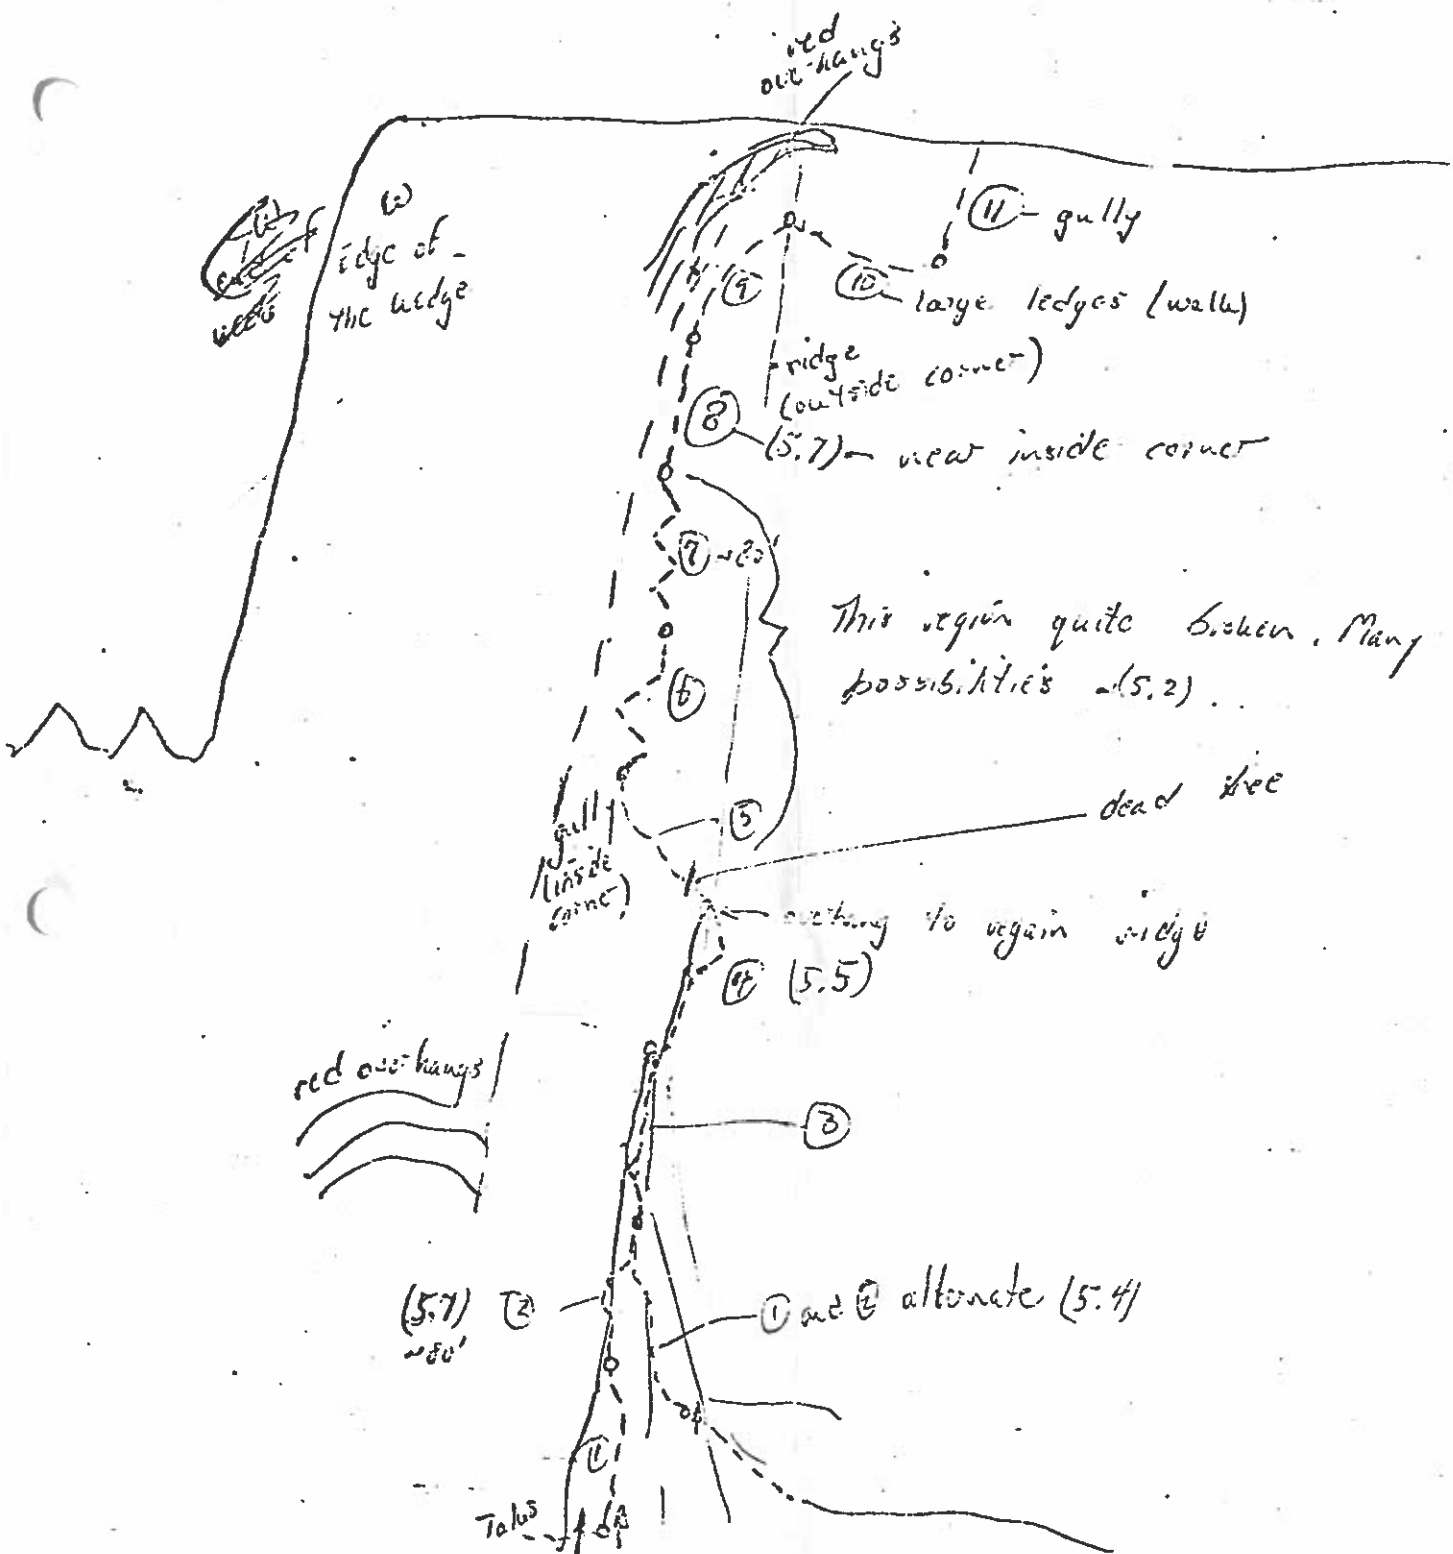 red
overhangs
(W)
Edge of
the wedge
⑪ - gully
⑨
⑩
large ledges (walk)
ridge
(outside corner)
⑧
(5.7) - near inside corner
⑦ ~80'
This region quite broken. Many
possibilities ~(5.2)
⑥
⑤
dead tree
gull
(inside
corner)
overhang to regain ridge
④ (5.5)
red overhangs
③
(5.7) ②
~80'
① and ② alternate (5.4)
①
Talus